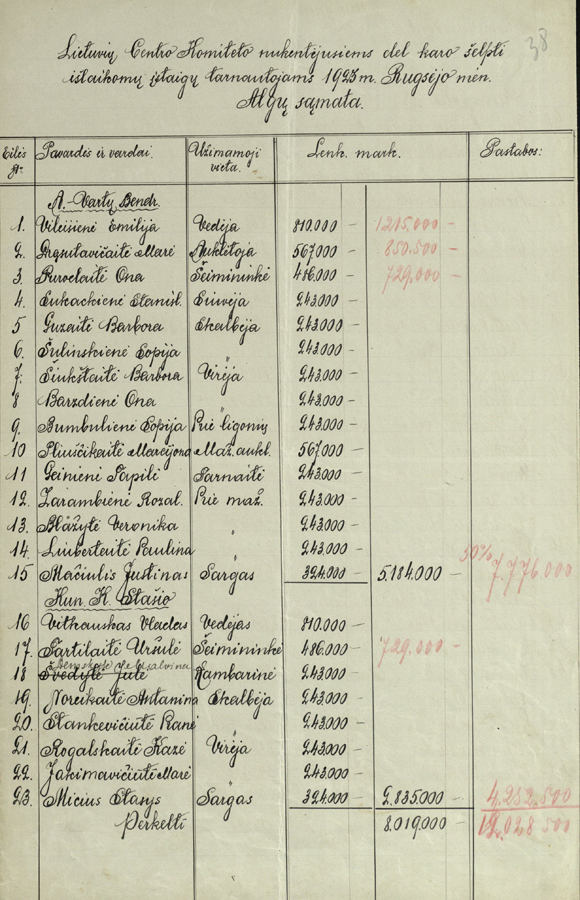 38
Lietuvių Centro Komiteto nukentėjusiems del karo šelpti
išlaikomų įstaigų tarnautojams 1923 m. Rugsėjo mėn.
Algų sąmata.
Eilės № Pavardės ir vardai. Užimamoji vieta. Lenk. mark. Pastabos:
A.-Vartų Bendr.
1. Vileišienė Emilija Vedėja 810.000 — 1215.000 —
2. Marė Auklėtoja 567.000 — 850.500 —
3. Ona Šeimininkė 486.000 — 729.000 —
4. Lukackienė Stanisl. Siuvėja 243.000 —
5 Guzaitė Barbora Skalbėja 243.000 —
6. Šulinskienė Sopija 243.000 —
7. Šiukštaitė Barbora Virėja 243.000 —
8 Barzdienė Ona 243.000 —
9. Bumbulienė Sopija Prie ligonių 243.000 —
10 Pliuščikaitė Marcijona Maž. aukl. 567.000 —
11 Tarnaitė 243.000 —
12. Zarambienė Rozal. Prie maž. 243.000 —
13. Blažytė Veronika " 243.000 —
14. Liubertaitė Paulina 243.000 —
15 Mačiulis Justinas Sargas 324.000 — 5.184.000 — 50% 7.776000
Kun. K. Stašio
16 Vitkauskas Vladas Vedėjas 810.000 —
17. Tartilaitė Uršulė Šeimininkė 486.000 — 729.000 —
18 Švedytė Julė Kambarinė 243.000 —
19. Noreikaitė Antanina Skalbėja 243.000 —
20. Stankevičiutė Ranė 243.000 —
21. Rogalskaitė Kazė Virėja 243.000 —
22. Jakimavičiutė Marė 243.000 —
23. Micius Stasys Sargas 324.000 — 2.835.000 — 4.252.500
Perkelti 8.019.000 — 12.028.500